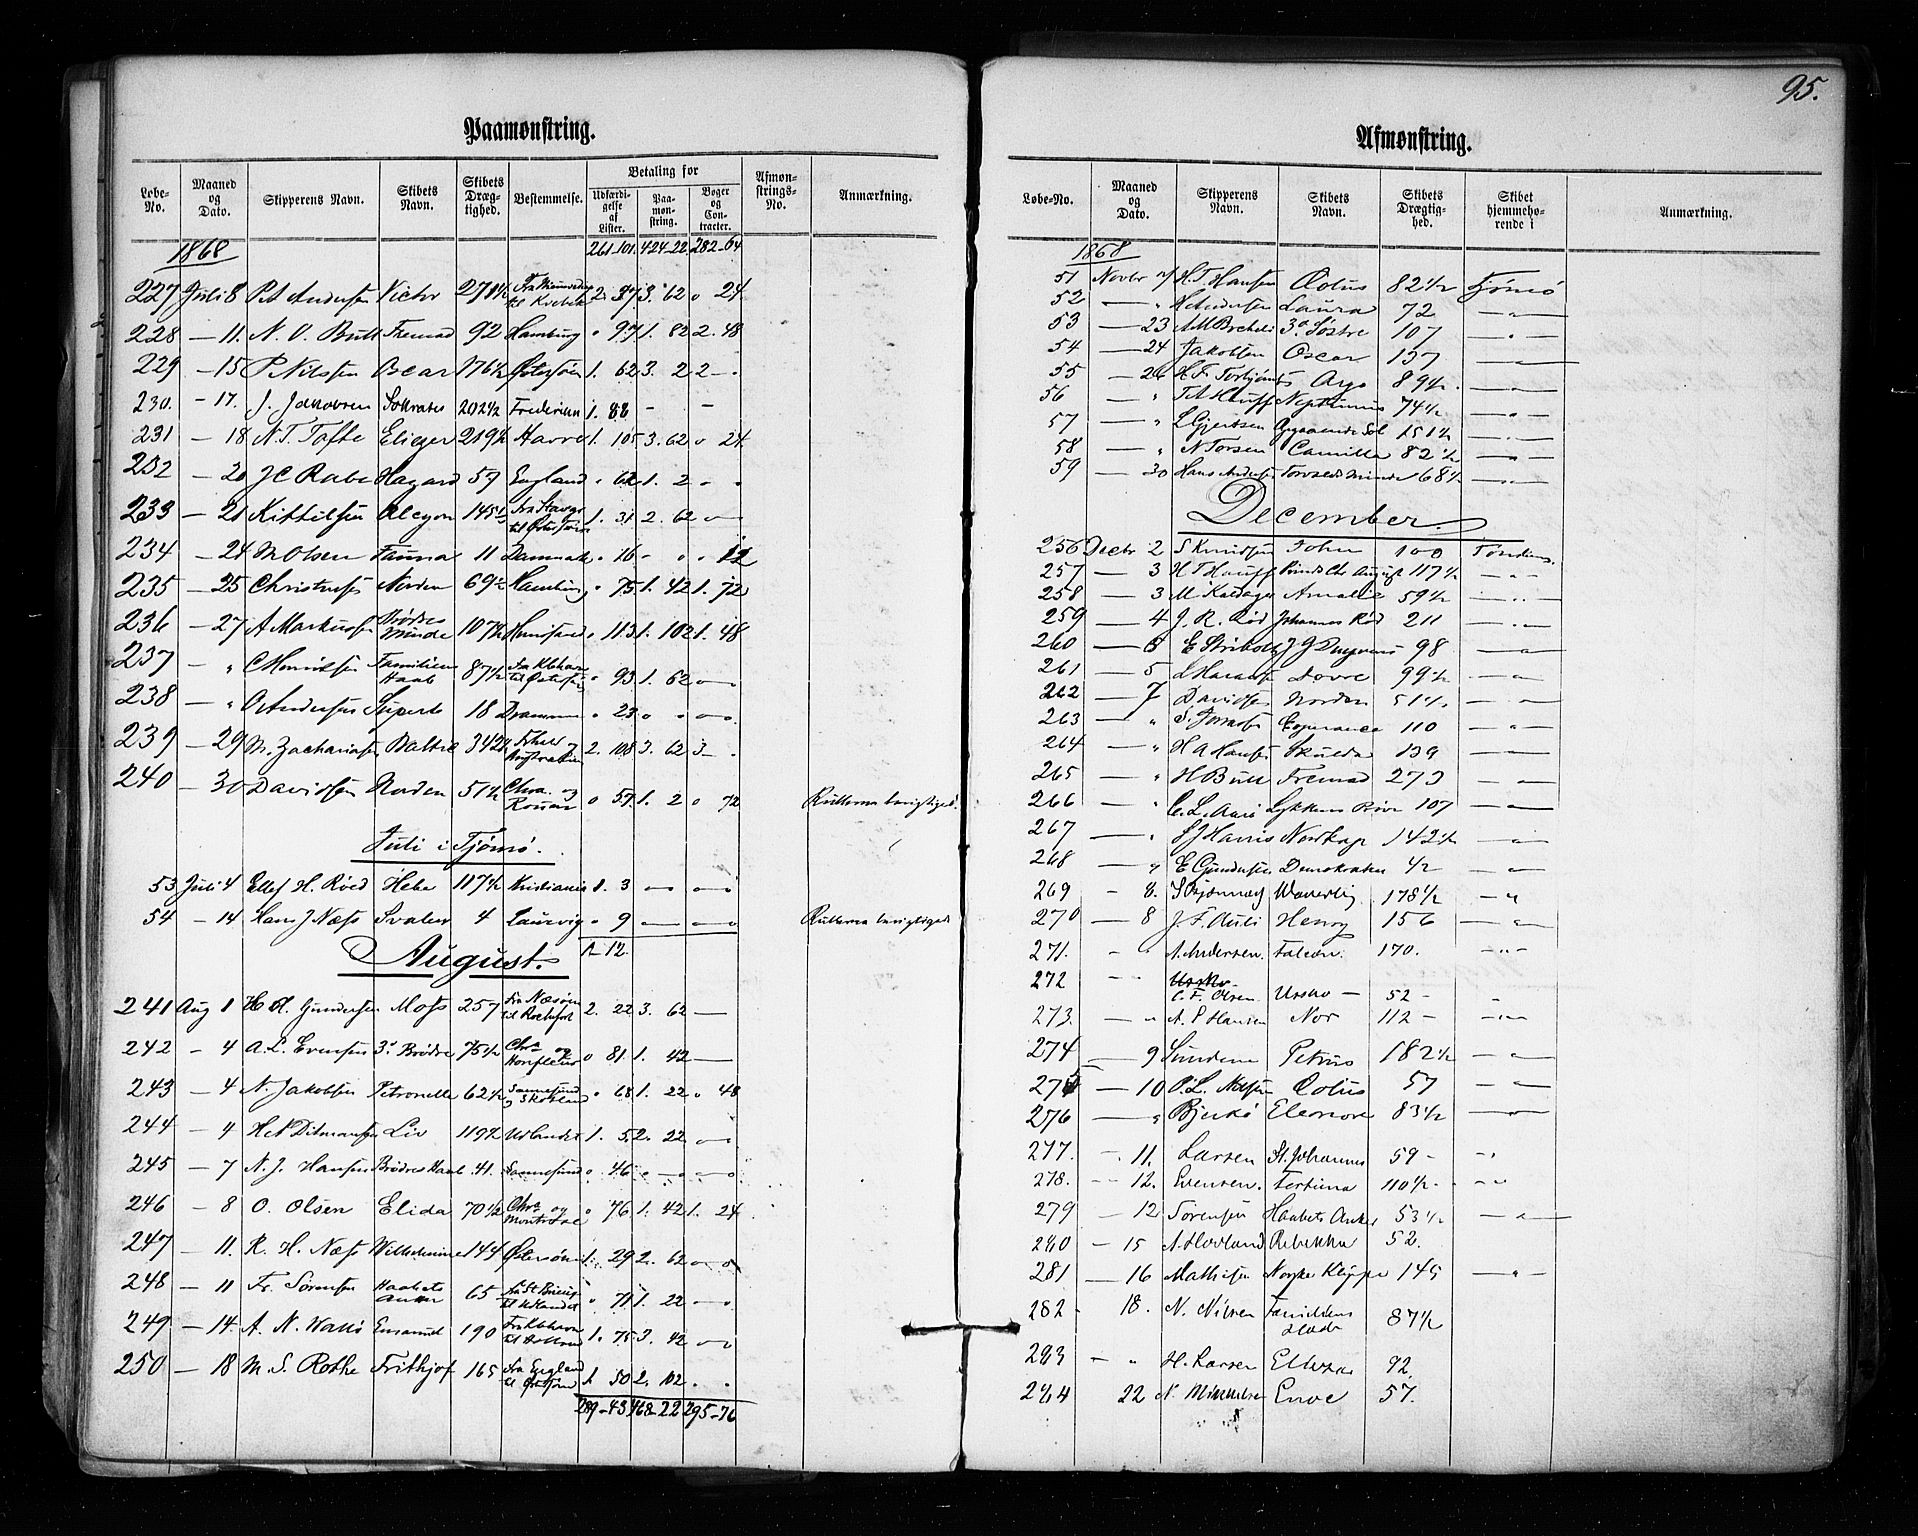 95.
Paamønstring.
Løbe-No. Maaned og Dato. Skipperens Navn. Skibets Navn. Skibets Dræg-tighed. Bestemmelse. Betaling for Udfærdi-gelse af Lister. Paa-møn-string. Bøger og Con-tracter. Afmøn-strings-No. Anmærkning.
1868 261-101. 424-22. 282-64
227 Juli 8 P.A. Andersen Victor 271½ 2. 37 3. 62 0 24
228 - 11. N. O. Bull Fremad 92 Hamburg " 97 1. 82 2. 48
229 - 15 P. Nilssen Oscar 176½ Østersøen 1. 62 3. 2 2 - .
230. - 17. J. Jakobsen Sokrates 202½ 1. 88 - -
231 - 18 N.T. Tofte Eliezer 219½ Havre 1. 105 3. 62 0 24
232 - 20 J C Rabe Hagard 59 England " 62 1. 2 - "
233 - 21 Kittilsen Alcyon 145½ 1. 31 2. 62 0 —
234 - 24 M Olsen Fauna 11 Danmark " 16 - " " 12
235 - 25 Christensen Norden 69½ Hamburg " 75 1. 42 1. 72
236 - 27 A Markussen Brødres Minde 107½ " 113 1. 102 1. 48
237 - " C Henriksen Familiens Haab 87½ " 93 1. 62 0—0
238 - " O Andersen Superb 18 Drammen " 23 0 " 0—0
239 - 29 M. Zachariasen Baltic 342½ 2. 108 3. 62 3 - .
240 - 30 Davidsen Norden 51½ Chra. og Rouen 0 57 1. 2 0 72 Rullerne berigtiged.
Juli i Tjømø.
53 Juli 4 Ellef H. Røed Hebe 117½ Kristiania 1. 3 —0 0—0
54 - 14 Hans J Næss Svalen 4 Laurvig " 9 — 0—0 Rullerne berigtiged
1-12.
August.
241 Aug 1 H. H. Gundersen Moss 257 2. 22 3. 62 —
242 - 4 A. L. Evensen 3de Brødre 75½ Chra og Honfleur 0 81 1. 42 —
243 - 4 N. Jakobsen Petronelle 62½ Sannesund og Skotland " 68 1. 22 " 48
244 - 4 H A Ditmansen Liv 119½ Udlandet 1. 5 2. 22 0—0
245 - 7 N. J. Hansen Brødres Haab 41. Sannesund 0 46 0 —0 0—0
246 - 8 O. Olsen Elida 70½ Chra og Montrose 0 76 1. 42 1. 24
247 - 11. R. H. Næss Wilhelmine 144 Østersøen 1. 29 2. 62 0 0
248 - 11 Fr. Sørensen Haabets Anker 65 0 71 1. 22 0—0
249 - 14. A. N. Wallø Emanuel 190 1. 75 3. 42 0—0
250 - 18 M. S. Rothe Frithjof 165 Fra England til Østersøen 1 50 2. 102 . .
289-43 468-22 295-76
Afmønstring.
Løbe-No. Maaned og Dato. Skipperens Navn. Skibets Navn. Skibets Drægtig-hed. Skibet hjemmehø-rende i Anmærkning.
1868
51 Novbr 7 H. T. Hansen Colus 82½ Tjømø
52 — " H Andersen Laura 72 — " —
53 — 23 3de Søstre 107 — " —
54 — 24 Jakobsen Oscar 137 — " —
55 — 26 Argo 89½ — " —
56 — " T A Hauff Neptunus 74½ — " —
57 — " L Gjertsen Opgaaende Sol 151½ — " —
58 — " N Torsen Camilla 82½ — " —
59 — 30 Hans Andersen Tordenskiolds Minde 68½ — " —
December
256 Decbr 2 S Knudsen John 100
257 — 3 H T Hauff Prinds Chr August 117½ — " —
258 — 3 M. Amalie 59½ — " —
259 — 4 J. R. Rød Johannes Rød 211 — " —
260 — 5 E Stribolt 98 — " —
261 — 5 L Hansen Dovre 99½ — " —
262 — 7 Davidsen Norden 51½ — " —
263 — " S. Esperance 110 — " —
264 — " H A Hansen Skulda 139 — " —
265 — " H Bull Fremad 273 — " —
266 — " C. L. Aarø Lykkens Prøve 107 — " —
267 — " S J Harris Nordkap 142½ — " —
268 " E Gundersen Demokraten 4½ — " —
269 - 8. Waverley 178½ — "
270 — 8 J. F. Auli Henry 156 — " —
271. - " A. Andersen. Falcon. 170. — " —
272 - " C. F. Olsen Urskov — 52 - "
273. — " A. P Hansen Nor 112 - — " —
274 — 9 Sundene Petrus 182½ — " —
275 — 10 O. L. Nilsen Colus 57 — " —
276 — " Bjerkø Eleonore 83½ — " —
277. - 11. Larsen St. Johannes 59 - - "
278. - " 12. Evensen. Fortuna 110½ - - "
279 — 12 Sørensen Haabets Anker 53½ — " —
280 — 15 A. Hovland Rebekka 52.
281 — 16 Mathisen Norske Klippe 145 — " —
282 - 18. N. Nilsen Familiens Haab 87½
283 - " H. Larsen Ellida 92.
284 22 N. Mikkelsen Enoe 57.